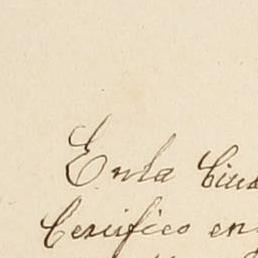 En la Ciud
Certifico en